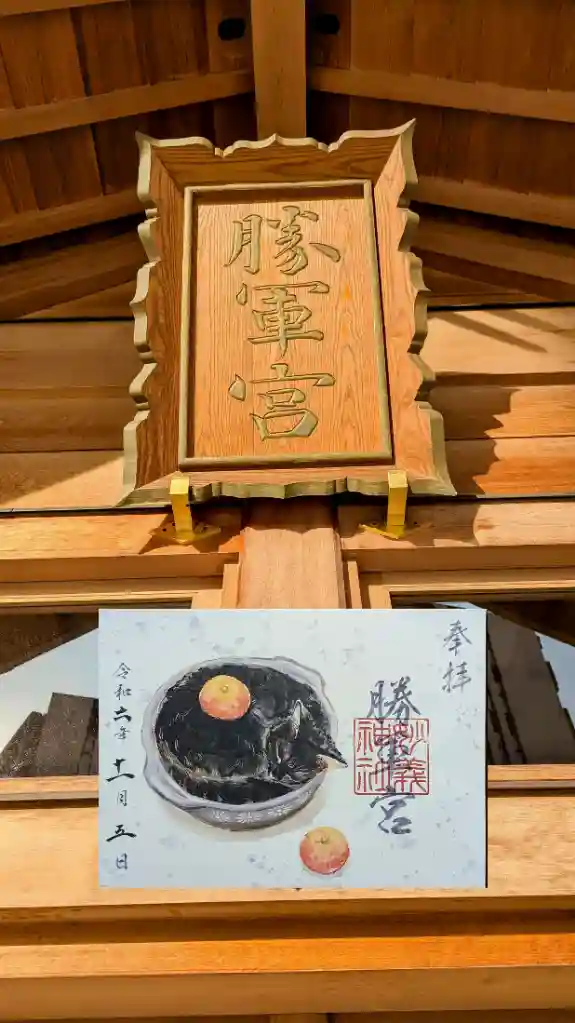 勝軍宮
奉拝
勝軍宮
妙義神社
令和六年十一月五日